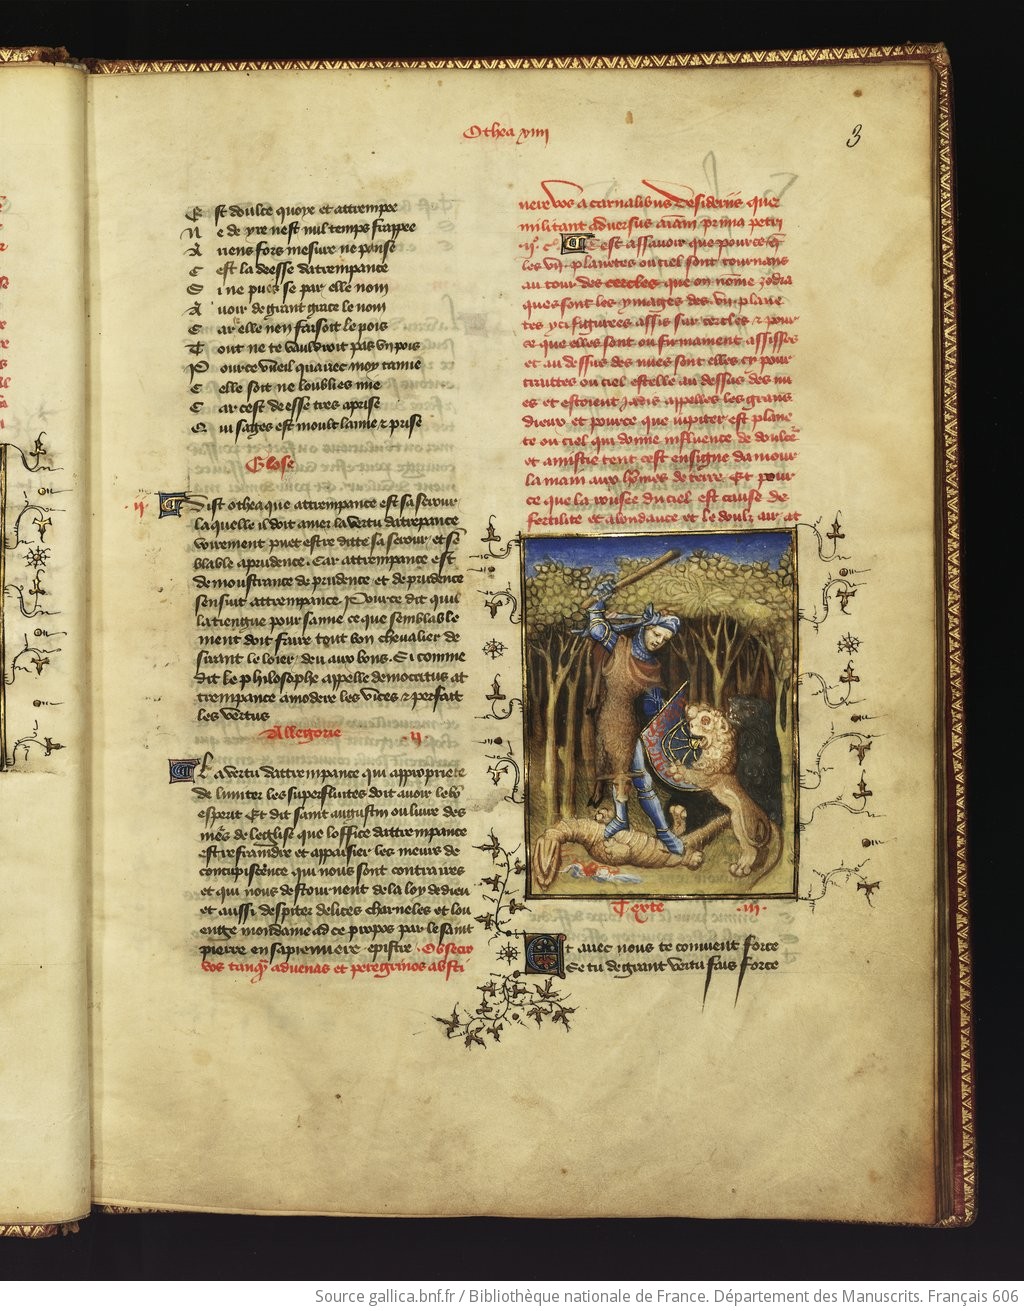 Othea xviii
3
E st doulce quoye et attrempee
N e de yre nest nul temps frappee
A riens fors mesure ne pense
C est la deesse dattrempance
S i ne pues se par elle non
A uoir de grant grace le nom
C ar elle nen faisoit le pois
T out ne te vauldroit pas vn pois
P ource vueil quauec moy tamie
C elle soit ne loublies mie
C ar cest deesse tres aprise
Q ui sages est moult lamie z prise
Glose
ii Dist othea que attrempance est sa serour
laquelle il doit amer la vertu datrepance
voirement puet estre ditte sa serour et se
blable a prudence. Car attrempance est
demoustrance de prudence et de prudence
sensuit attrempance. Pource dit quil
la tiengne pour samie ce que semblable
ment doit faire tout bon cheualier de
sirant le loier deu aux bons. Si comme
dit le philosophe appelle democritus at
trempance amodere les vices z perfait
les vertus
Allegorie ii
La vertu dattrempance qui appropriete
de limiter les superfluites doit auoir le bo
esperit Et dit saint augustin ou liure des
mes de leglise que loffice dattrempance
est refraindre et appaisier les meurs de
concupiscence qui nous sont contraires
et qui nous destournent de la loy de dieu
et aussi despiter delices charneles et lou
enge mondaine ad ce propos parle saint
pierre en sa premiere epistre. Obsecro
vos tanq aduenas et peregrinos absti
nere vos a carnalibus desideriis que
militant aduersus aiam prima petri
ii. c. Cest assauoir que pource q
les vii planetes ou ciel sont tournans
au tour des cercles que on nome zodia
ques sont les ymages des vii plane
tes yci figurees assis sur cercles z pour
ce que elles sont ou firmament assisses
et au dessus des nues sont elles cy pour
traittes ou ciel estelle au dessus des nu
es et estoient jadis appelles les grans
dieux et pource que iupiter est plane
te ou ciel qui donne influence de doulce
et amistie tent cest ensigne damour
la main aux homes de terre Et pour
ce que la rousee du ciel est cause de
fertilite et abondance et le doulz air at
Texte iii
Et auec nous te conuient force
Se tu de grant vertu fais force
Source gallica.bnf.fr / Bibliothèque nationale de France. Département des Manuscrits. Français 606